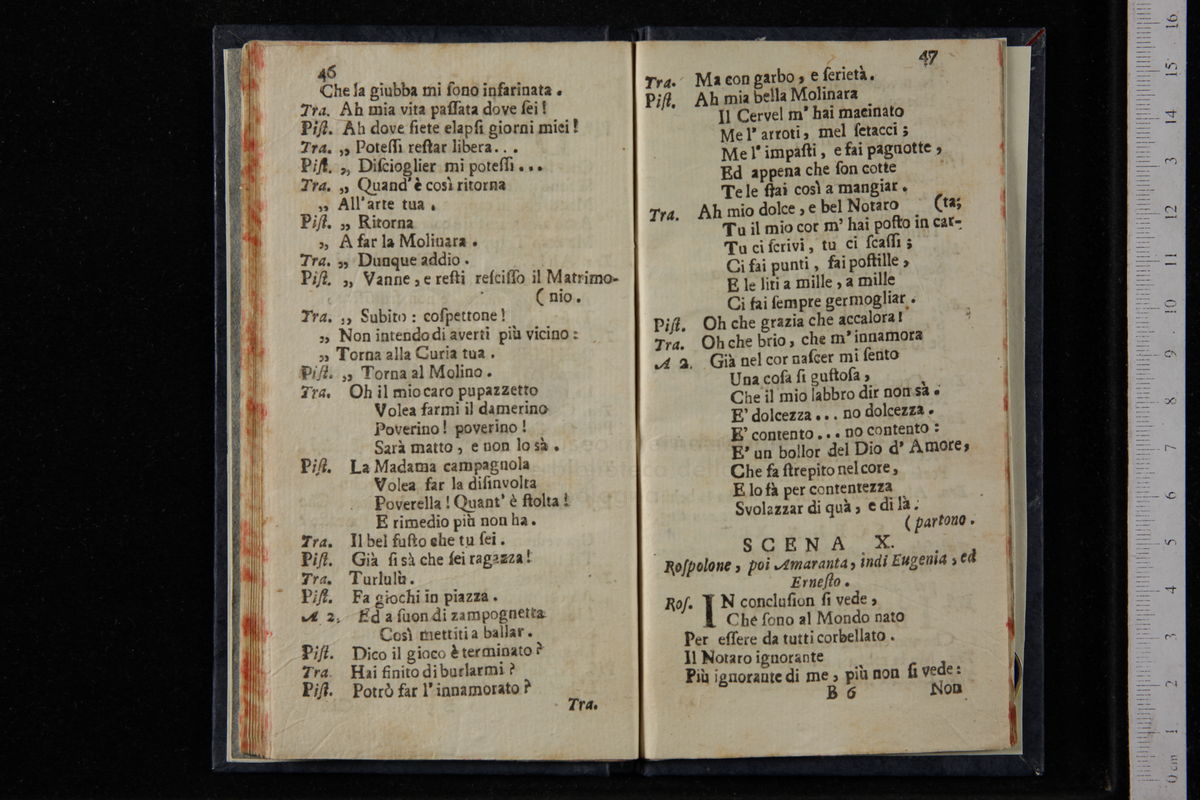 46
Che la giubba mi ſono infarinata.
Tra. Ah mia vita paſſata dove ſei!
Piſt. Ah dove ſiete elapſi giorni miei!
Tra. ,, Poteſſi reſtar libera...
Piſt. ,, Diſcioglier mi poteſſi...
Tra. ,, Quand' è così ritorna
,, All'arte tua.
Piſt. ,, Ritorna
,, A far la Molinara.
Tra. ,, Dunque addio.
Piſt. ,, Vanne, e reſti reſciſſo il Matrimo-
(nio.
Tra. ,, Subito: coſpettone!
,, Non intendo di averti più vicino:
,, Torna alla Curia tua.
Piſt. ,, Torna al Molino.
Tra. Oh il mio caro pupazzetto
Volea farmi il damerino
Poverino! poverino!
Sarà matto, e non lo sà.
Piſt. La Madama campagnola
Volea far la diſinvolta
Poverella! Quant' è ſtolta!
E rimedio più non ha.
Tra. Il bel fuſto che tu ſei.
Piſt. Già ſi sà che ſei ragazza!
Tra. Turlulù.
Piſt. Fa giochi in piazza.
A 2. Ed a ſuon di zampognetta
Così mettiti a ballar.
Piſt. Dico il gioco è terminato?
Tra. Hai finito di burlarmi?
Piſt. Potrò far l' innamorato?
Tra.
47
Tra. Ma con garbo, e ſerietà.
Piſt. Ah mia bella Molinara
Il Cervel m' hai macinato
Me l' arroti, mel ſetacci;
Me l' impaſti, e fai pagnotte,
Ed appena che ſon cotte
Te le ſtai così a mangiar.
Tra. Ah mio dolce, e bel Notaro (ta;
Tu il mio cor m' hai poſto in car-
Tu ci ſcrivi, tu ci ſcaſſi;
Ci fai punti, fai poſtille,
E le liti a mille, a mille
Ci fai ſempre germogliar.
Piſt. Oh che grazia che accalora!
Tra. Oh che brio, che m' innamora
A 2. Già nel cor naſcer mi ſento
Una coſa ſi guſtoſa,
Che il mio labbro dir non sà.
E' dolcezza... no dolcezza.
E' contento... no contento:
E' un bollor del Dio d' Amore,
Che fa ſtrepito nel core,
E lo fà per contentezza
Svolazzar di quà, e di là.
(partono.
SCENA X.
Roſpolone, poi Amaranta, indi Eugenia, ed
Erneſto.
Roſ. IN concluſion ſi vede,
Che ſono al Mondo nato
Per eſſere da tutti corbellato.
Il Notaro ignorante
Più ignorante di me, più non ſi vede:
B 6 Non